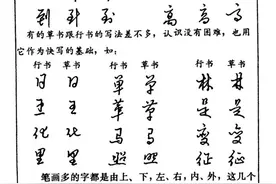 到 到 到 高 高 高
有的草书跟行书的写法差不多，认识没有困难，也用
它作为快写的基础，如：
行书 草书 行书 草书 行书 草书
日 日 单 单 林 林
王 王 草 草 是 是
化 化 马 马 变 变
里 里 照 照 征 征
笔画多的字都是由上、下，左、右，内、外，这几个